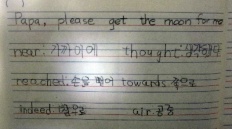 ( )
Papa, please get the moon for me
near: 가까이에 thought: 생각했다
reached: 손을 뻗어 towards: 쪽으로
indeed: 참으로 air: 공중